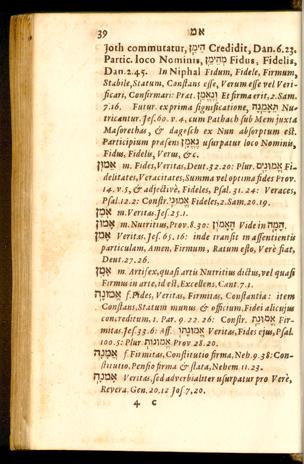 39 אמ
Joth commutatur, הֵימִן Credidit, Dan. 6. 23.
Partic. loco Nominis, מְהֵימַן Fidus, Fidelis,
Dan. 2. 45. In Niphal Fidum, Fidele, Firmum,
Stabile, Statum, Constans esse, Verum esse vel Veri-
ficari, Confirmari: Præt. וְנֶאְמַן Et firma erit, 2. Sam.
7. 16. Futur. ex prima significatione, תֵּאָמַנָה Nu-
tricantur. Jes. 60. v. 4. cum Pathach sub Mem juxta
Masorethas, & dagesch ex Nun absorptum est.
Participium præsens נֶאֱמָן usurpatur loco Nominis,
Fidus, Fidelis, Verus, &c.
אֵמֻן m. Fides, Veritas, Deut. 32. 20: Plur. אֱמוּנִים Fi-
delitates, Veracitates, Summa vel optima fides Prov.
14. v. 5, & adjectivè, Fideles, Psal. 31. 24: Veraces,
Psal. 12. 2: Constr. אֱמוּנֵי Fideles, 2. Sam. 20. 19.
אֹמֶן m. Veritas. Jes. 25. 1.
אָמוֹן m. Nutritius, Prov. 8. 30: הָאָמוֹן Vide in הָמָה
אָמֵן Veritas. Jes. 65. 16: inde transit in assentientis
particulam, Amen, Firmum, Ratum esto, Verè fiat,
Deut. 27. 26.
אָמָן m. Artifex, quasi artis Nutritius dictus, vel quasi
Firmus in arte, id est, Excellens, Cant. 7. 1.
אֱמוּנָה f. Pides, Veritas, Firmitas, Constantia: item
Constans, Statum munus & officium, Fidei alicujus
concreditum, 1. Par. 9. 22. 26: Constr. אֱמוּנַת Fir-
mitas. Jes. 33. 6: Aff. אֱמוּנָתוֹ Veritas, Fides ejus, Psal.
100. 5: Plur. אֱמוּנוֹת Prov. 28. 20.
אֲמָנָה f. Firmitas, Constitutio firma, Neh. 9. 38: Con-
stitutio, Pensio firma & stata, Nehem. 11. 23.
אָמְנָה Veritas, sed adverbialiter usurpatur pro Verè,
Revera. Gen. 20. 12 Jos 7. 20.
4 C